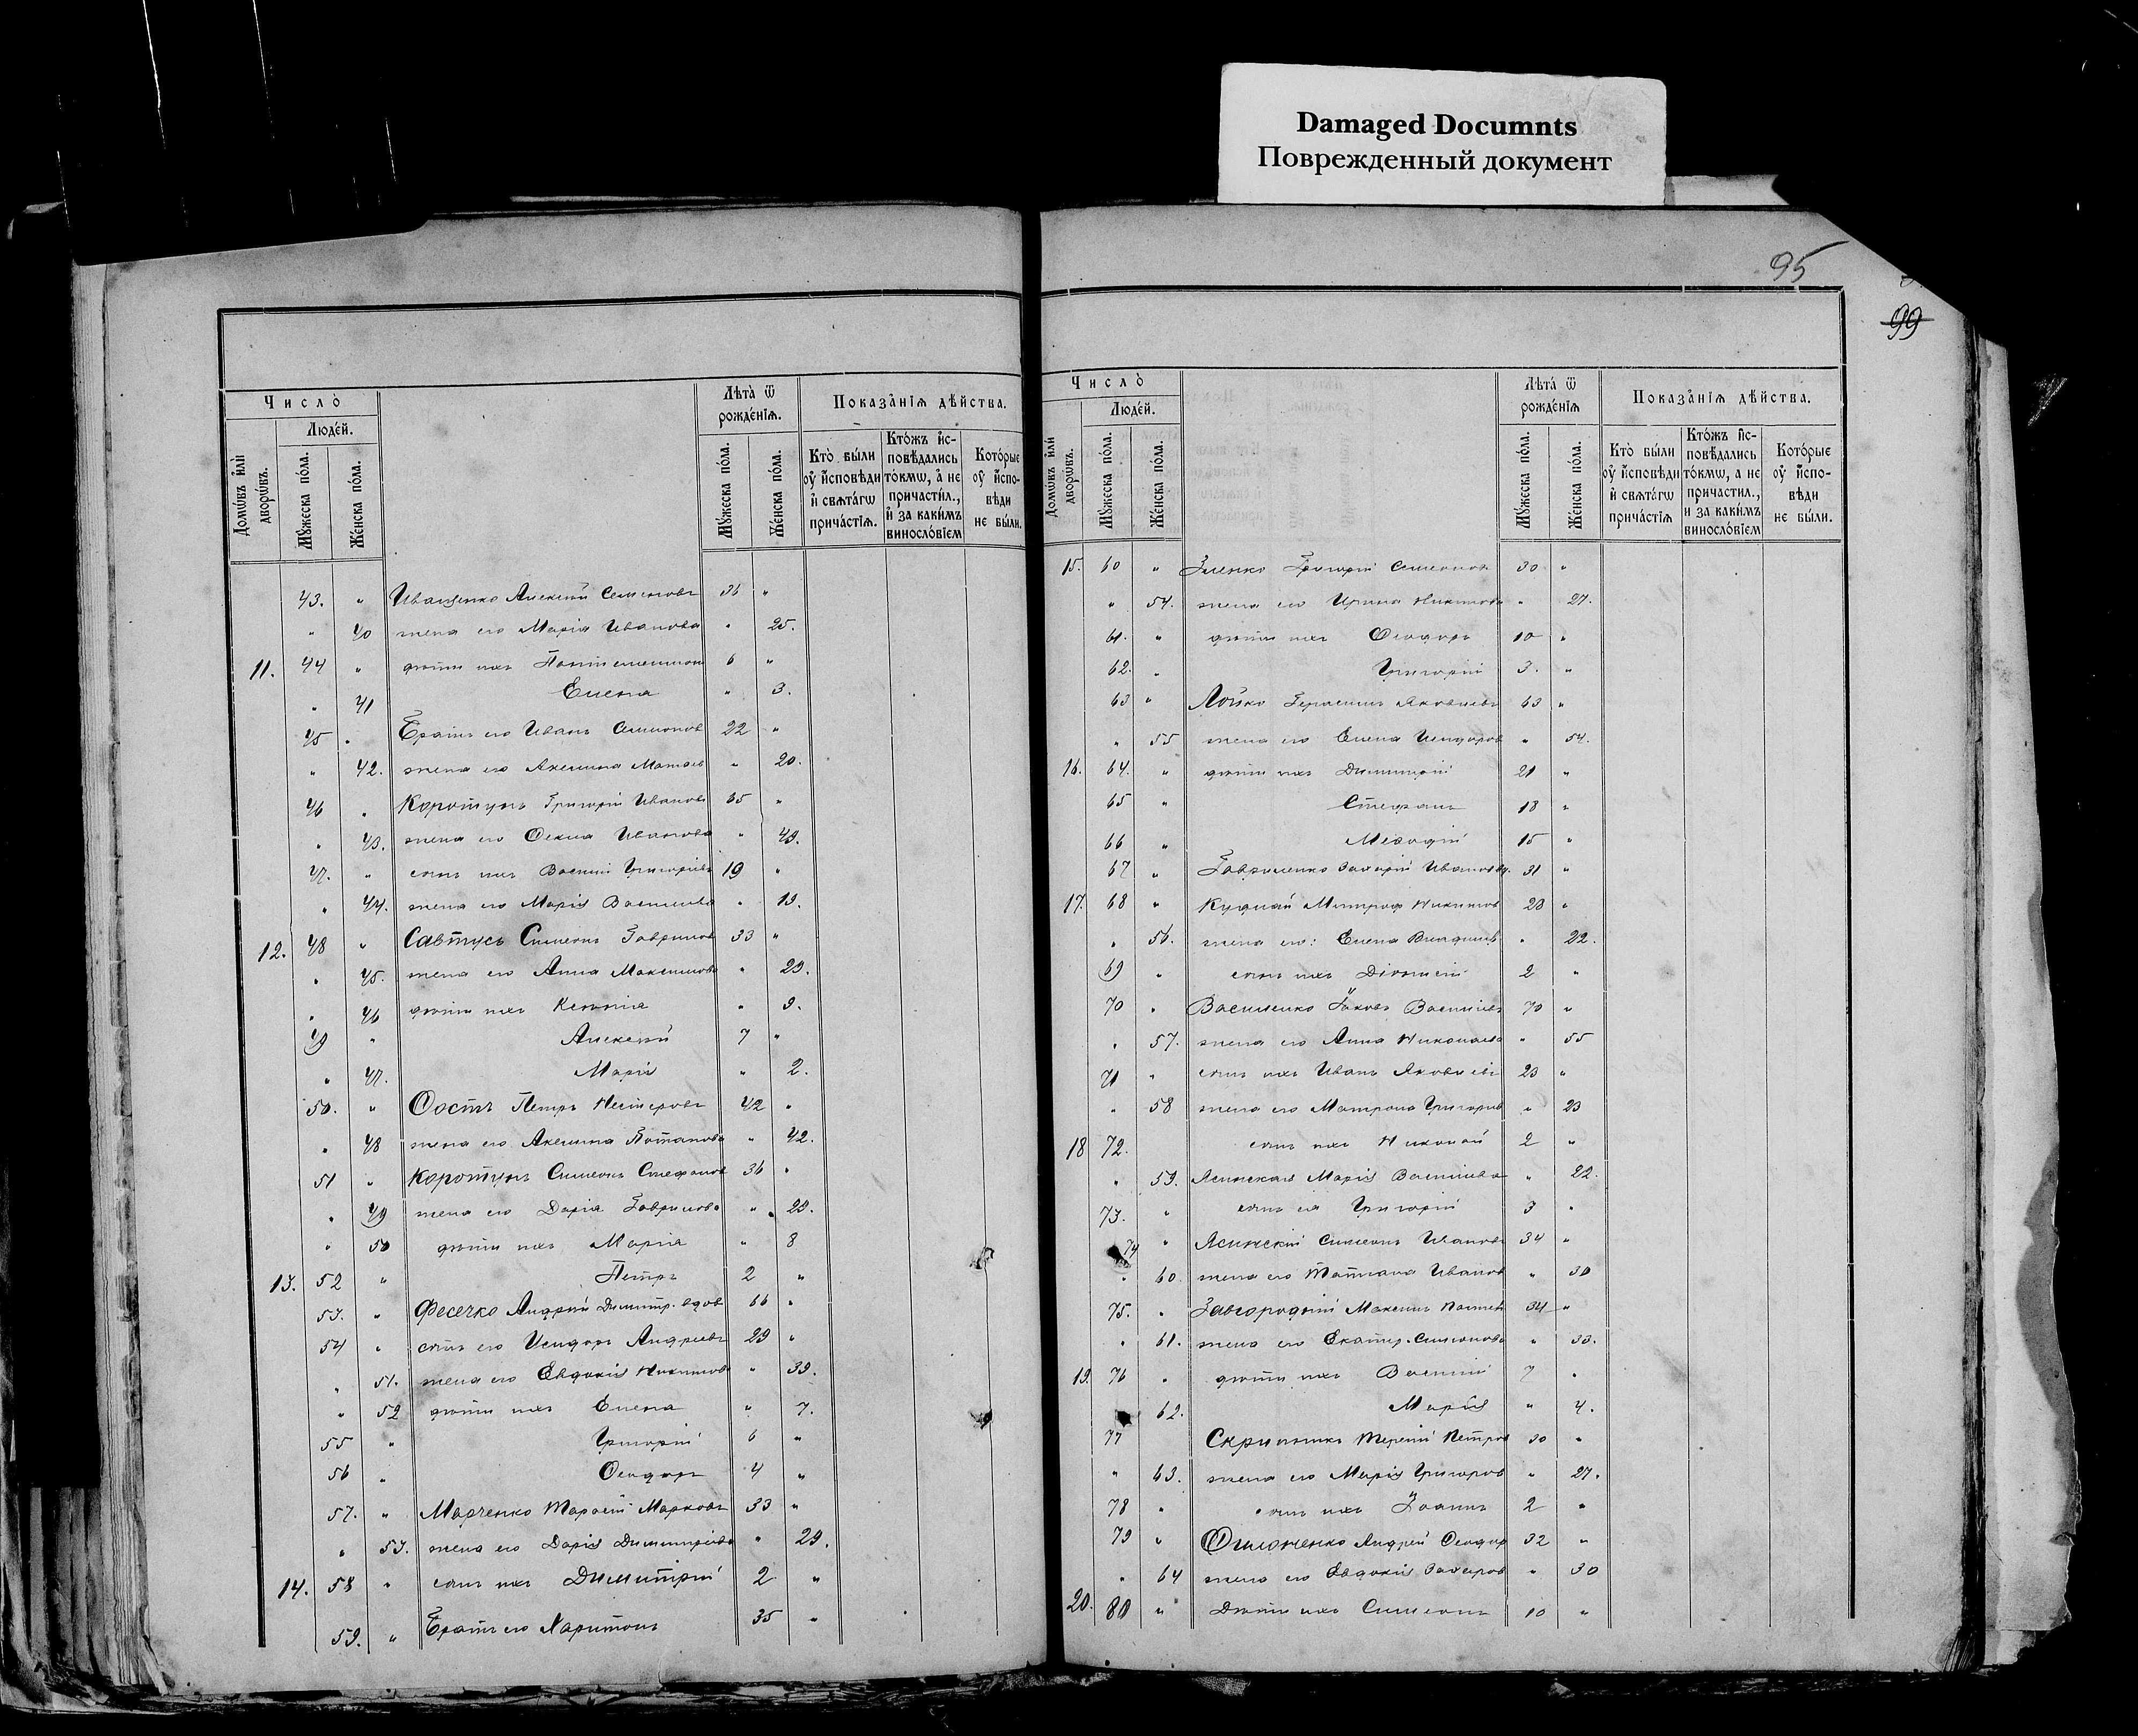 Damaged Documnts
Поврежденный документ
95
99
Число̀
Людéй.
Домѡ́въ и҆лѝ дворѡ́въ.
Мꙋ́жеска по́ла.
Же́нска по́ла.
Лѣта̀ ѿ рожде́нїѧ.
Мꙋ́жеска по́ла.
Же́нска по́ла.
Показа̑нїѧ дѣ́йства.
Кто̀ бы́ли ᲂу҆ и҆́сповѣди и҆ свѧта́гѡ прича́стїѧ.
Кто́жъ и҆с- повѣ́дались то́кмѡ, а҆ не причасти́л., и҆ за каки́мъ виносло́вїем
Кото́рые ᲂу҆ и҆́спо- вѣди не бы́ли.
43. " Иващенко Алексѣй Семеновъ 36 "
" 40 жена его Марія Иванова " 25.
11. 44 " дѣти ихъ Пантелеимонъ 6 "
" 41 Елена " 3.
45 " Братъ его Иванъ Симеонов 22 "
" 42. жена его Акелина Матѳев " 20.
46 " Коротунъ Григорій Ивановъ 65 "
" 43. жена его Ѳекла Иванова " 49.
47. " сынъ ихъ Василій Григоріевъ 19 "
" 44. жена его Марія Васильева " 19.
12. 48 " Савтусъ Симеонъ Гаврилов 33 "
" 45. жена его Анна Максимова " 29.
" 46 дѣти ихъ Ксенія " 9.
49 " Алексѣй 7 "
" 47. Марія " 2.
50. " Ѳостъ Петръ Нестеровъ 42 "
" 48 жена его Акелина Потапова " 42.
51 " Коротунъ Симеонъ Стефанов 36 "
" 49 жена его Дарія Гаврилова " 29.
" 50 дѣти ихъ Марія " 8
13. 52 " Петръ 2 "
53. " Фесечко Андрей Димитр. вдов 66 "
54 " сынъ его Исидоръ Андреевъ 29 "
" 51. жена его Евдокія Никитова " 39.
" 52 дѣти ихъ Елена " 7.
55 " Григорій 6 "
56 " Ѳеодоръ 4 "
57. " Марченко Тарасій Марковъ 33 "
" 53. жена его Дарія Димитріева " 29.
14. 58 " сынъ ихъ Димитрій 2 "
59. " Братъ его Харитонъ 35 "
Число̀
Людéй.
Домѡ́въ и҆лѝ дворѡ́въ.
Мꙋ́жеска по́ла.
Же́нска по́ла.
Лѣта́ ѿ рожде́нїѧ
Мꙋ́жеска по́ла.
Же́нска по́ла.
Показа̑нїѧ дѣ́йства.
Кто̀ бы́ли ᲂу҆ и҆́сповѣди и҆ свѧта́гѡ прича́стїѧ
Кто́жъ и҆с- повѣ́дались то́кмѡ, а҆ не причасти́л., и за каки́мъ виносло́вїем
Кото́рые ᲂу҆ и҆́спо- вѣди не бы́ли.
15. 60 " Григорій Симеонов 30 "
" 54. жена его Ирина Никитова " 27.
61. " дѣти ихъ Ѳеодоръ 10 "
62. " Григорій 3. "
63 " Лойко Герасимъ Яковлевъ 63 "
" 55 жена его Елена Исидоров " 54.
16. 64. " дѣти ихъ Димитрій 21 "
65 " Стефанъ 18 "
66 " Меѳодій 15 "
67 " Гавриленко Захарій Иванов 31 "
17. 68 " Митроф Никитов 28 "
" 56. жена его: Елена " 22.
69 " сынъ ихъ 2 "
70 " Василенко Іаковъ Васильевъ 70 "
" 57. жена его Анна Николаева " 55
71 " сынъ ихъ Иванъ Яковлевъ 23 "
" 58 жена его Матрона Григорьев " 23
18 72. сынъ ихъ Николай 2 "
" 59. Ясинская Марія Васильева " 22.
73. " сынъ ея Григорій 3 "
74 " Ясинскій Симеонъ Иванов 34 "
" 60. жена его Татіана Иванов " 30
75. " Завгородній Максимъ 34 "
" 61. жена его Екатер. Симеонова " 33.
19. 76 " дѣти ихъ Василій 7 "
62. Марія " 4.
77 Скрипникъ Терентій Петров 30 "
" 63. жена его Марія Григоров " 27.
78 " сынъ ихъ Іоаннъ 2 "
79 " Филоненко Андрей Ѳеодор 32 "
" 64 жена его Евдокія Захаров " 30
20. 80 " Дѣти ихъ Симеонъ 10 "